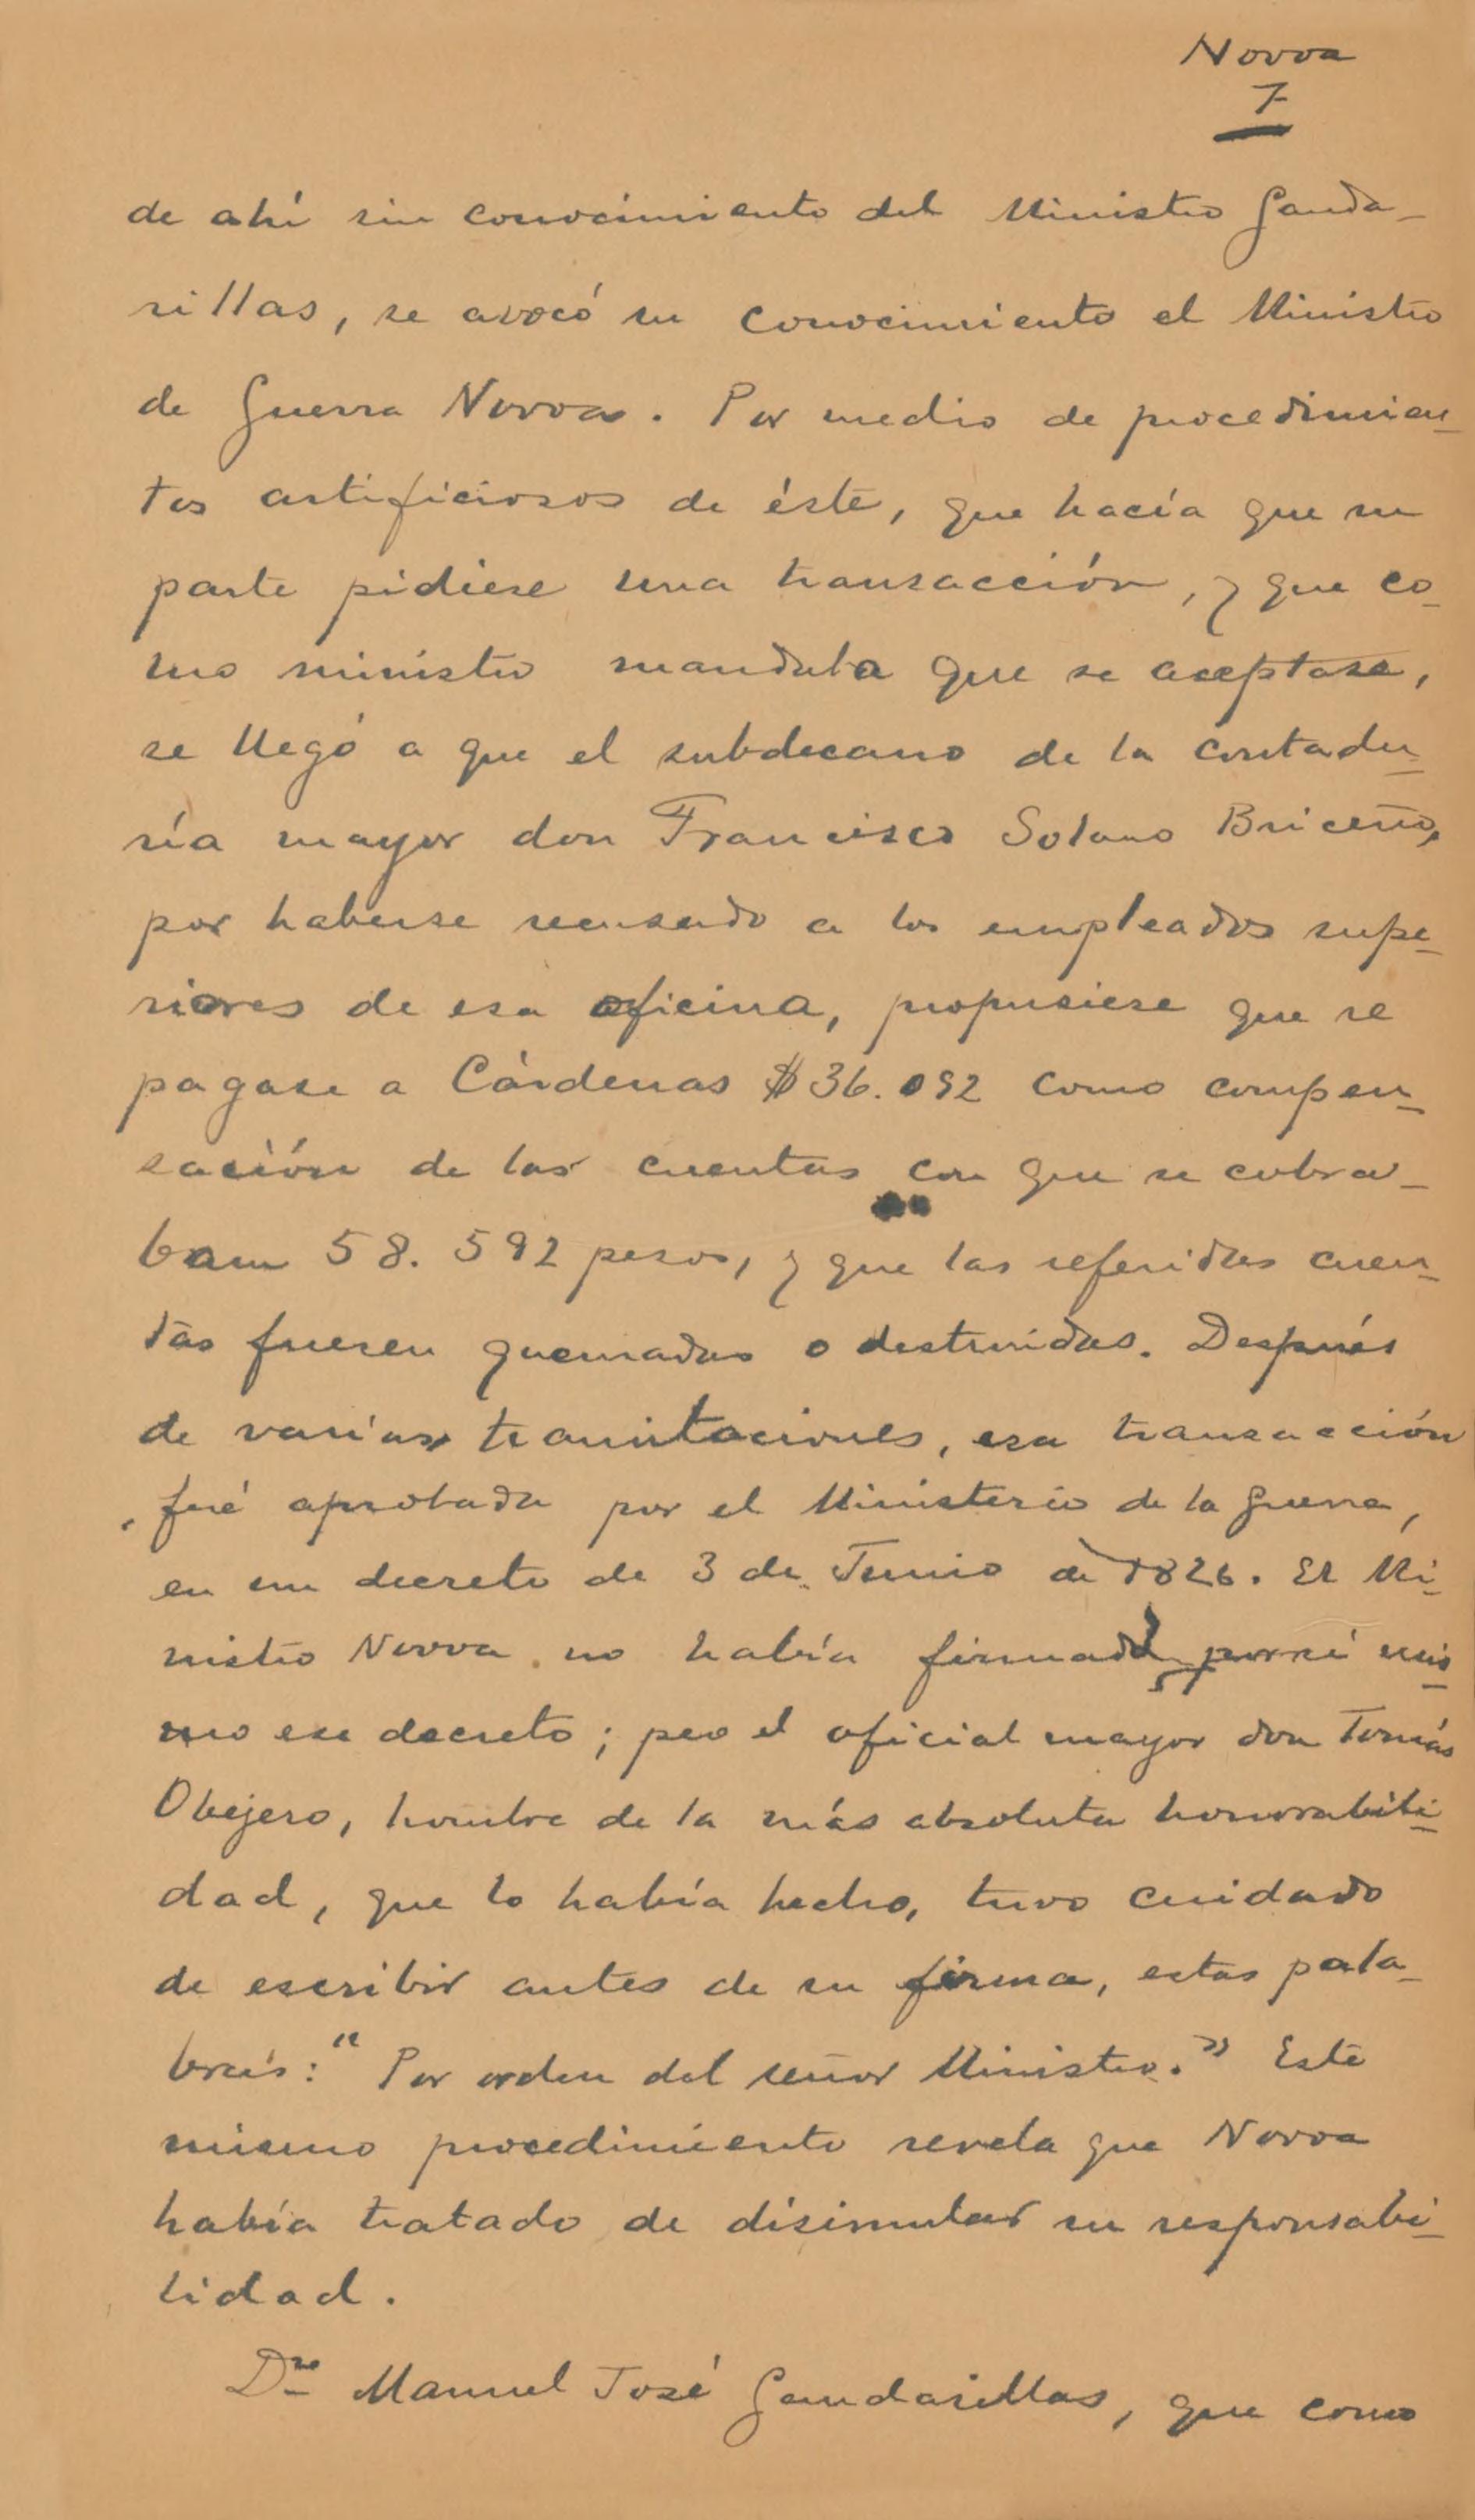 Novoa
7
de ahí sin conocimiento del Ministro Ganda-
rillas, se avocó su conocimiento el Ministro
de Guerra Novoa. Por medio de procedimien-
tos artificiosos de éste, que hacía que su
parte pidiese una transacción, y que co-
mo ministro mandaba que se aceptase,
se llegó a que el subdecano de la contadu-
ría mayor don Francisco Solano Briceño,
por haberse recusado a los empleados supe-
riores de esa oficina, propusiese que se
pagase a Cárdenas $ 36.092 como compen-
sación de las cuentas con que se cobra-
ban 58.592 pesos, y que las referidas cuen-
tas fuesen quemadas o destruidas. Después
de varias tramitaciones, esa transacción
fué aprobada por el Ministerio de la Guerra,
en un decreto de 3 de Junio de 1826. El Mi-
nistro Novoa no había firmado por sí mis-
mo ese decreto; pero el oficial mayor don Tomás
Obejero, hombre de la más absoluta honorabili-
dad, que lo había hecho, tuvo cuidado
de escribir antes de su firma, estas pala-
bras: "Por orden del señor Ministro." Este
mismo procedimiento revela que Novoa
había tratado de disimular su responsabi-
lidad.
Dn Manuel José Gandarillas, que como